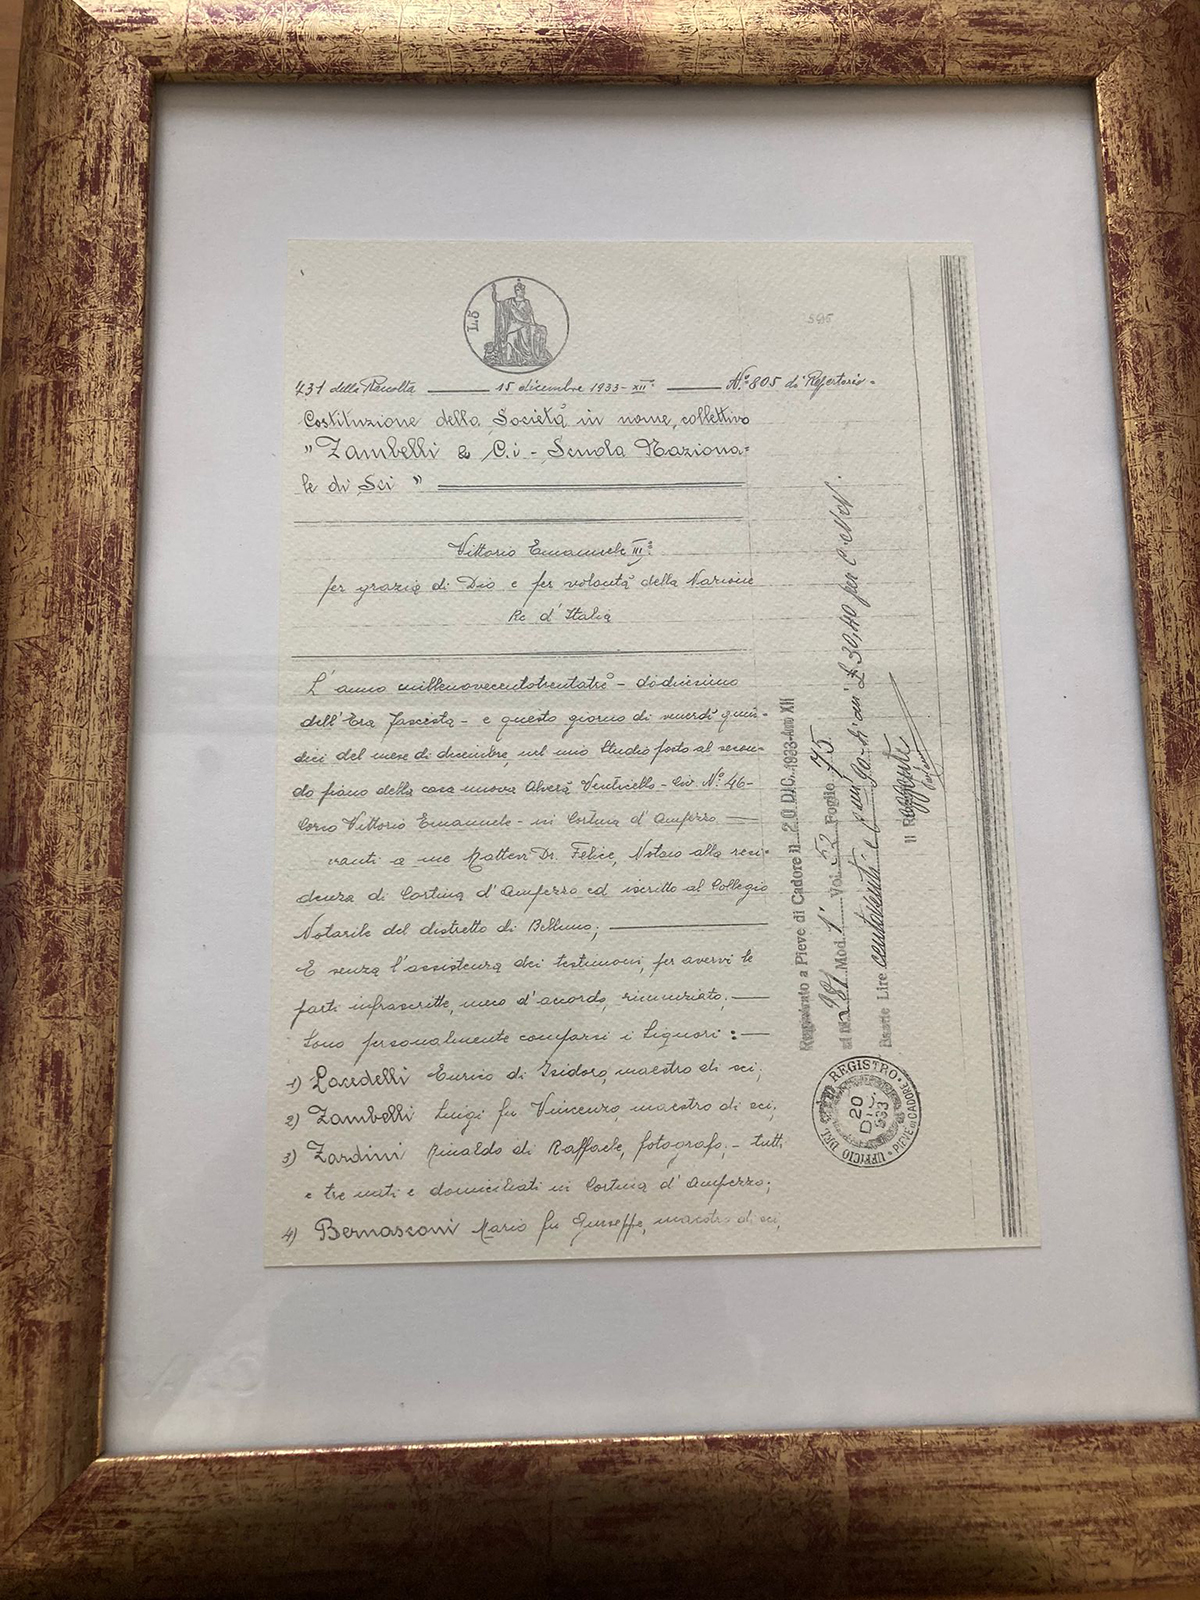 L. 5
595
431 della Raccolta 15 dicembre 1933 - XII° N.° 805 di Repertorio.
Costituzione della Società in nome collettivo
" Zambelli & C.i - Scuola Naziona=
le di Sci "
Vittorio Emanuele III°
per grazia di Dio e per volontà della Nazione
Re d'Italia
L'anno millenovecentotrentatrè - dodicesimo
dell'Era Fascista - e questo giorno di venerdì quin-
dici del mese di dicembre, nel mio Studio posto al secon-
do piano della casa nuova Alverà Venticello - Civ. N.° 46 -
Corso Vittorio Emanuele - in Cortina d'Ampezzo.
vanti a me Matteu Dr. Felice, Notaio alla resi=
denza di Cortina d'Ampezzo ed iscritto al Collegio
Notarile del distretto di Belluno;
E senza l'assistenza dei testimoni, per avervi le
parti infrascritte, meco d'accordo, rinunziato.
Sono personalmente comparsi i Signori:
1) Lacedelli Enrico di Isidoro, maestro di sci;
2) Zambelli Luigi fu Vincenzo, maestro di sci;
3) Zardini Rinaldo di Raffaele, fotografo; - tutti
e tre nati e domiciliati in Cortina d'Ampezzo;
4) Bernasconi Mario fu Giuseppe, maestro di sci,
Registrato a Pieve di Cadore il 20 DIC. 1933 - Anno XII
al N. 281 Mod. 1° Vol. 52 Foglio 75.
Esatte Lire centoventi e L 30,40 per
Il Reggente
UFFICIO DEL REGISTRO • PIEVE di CADORE
20 DIC 933